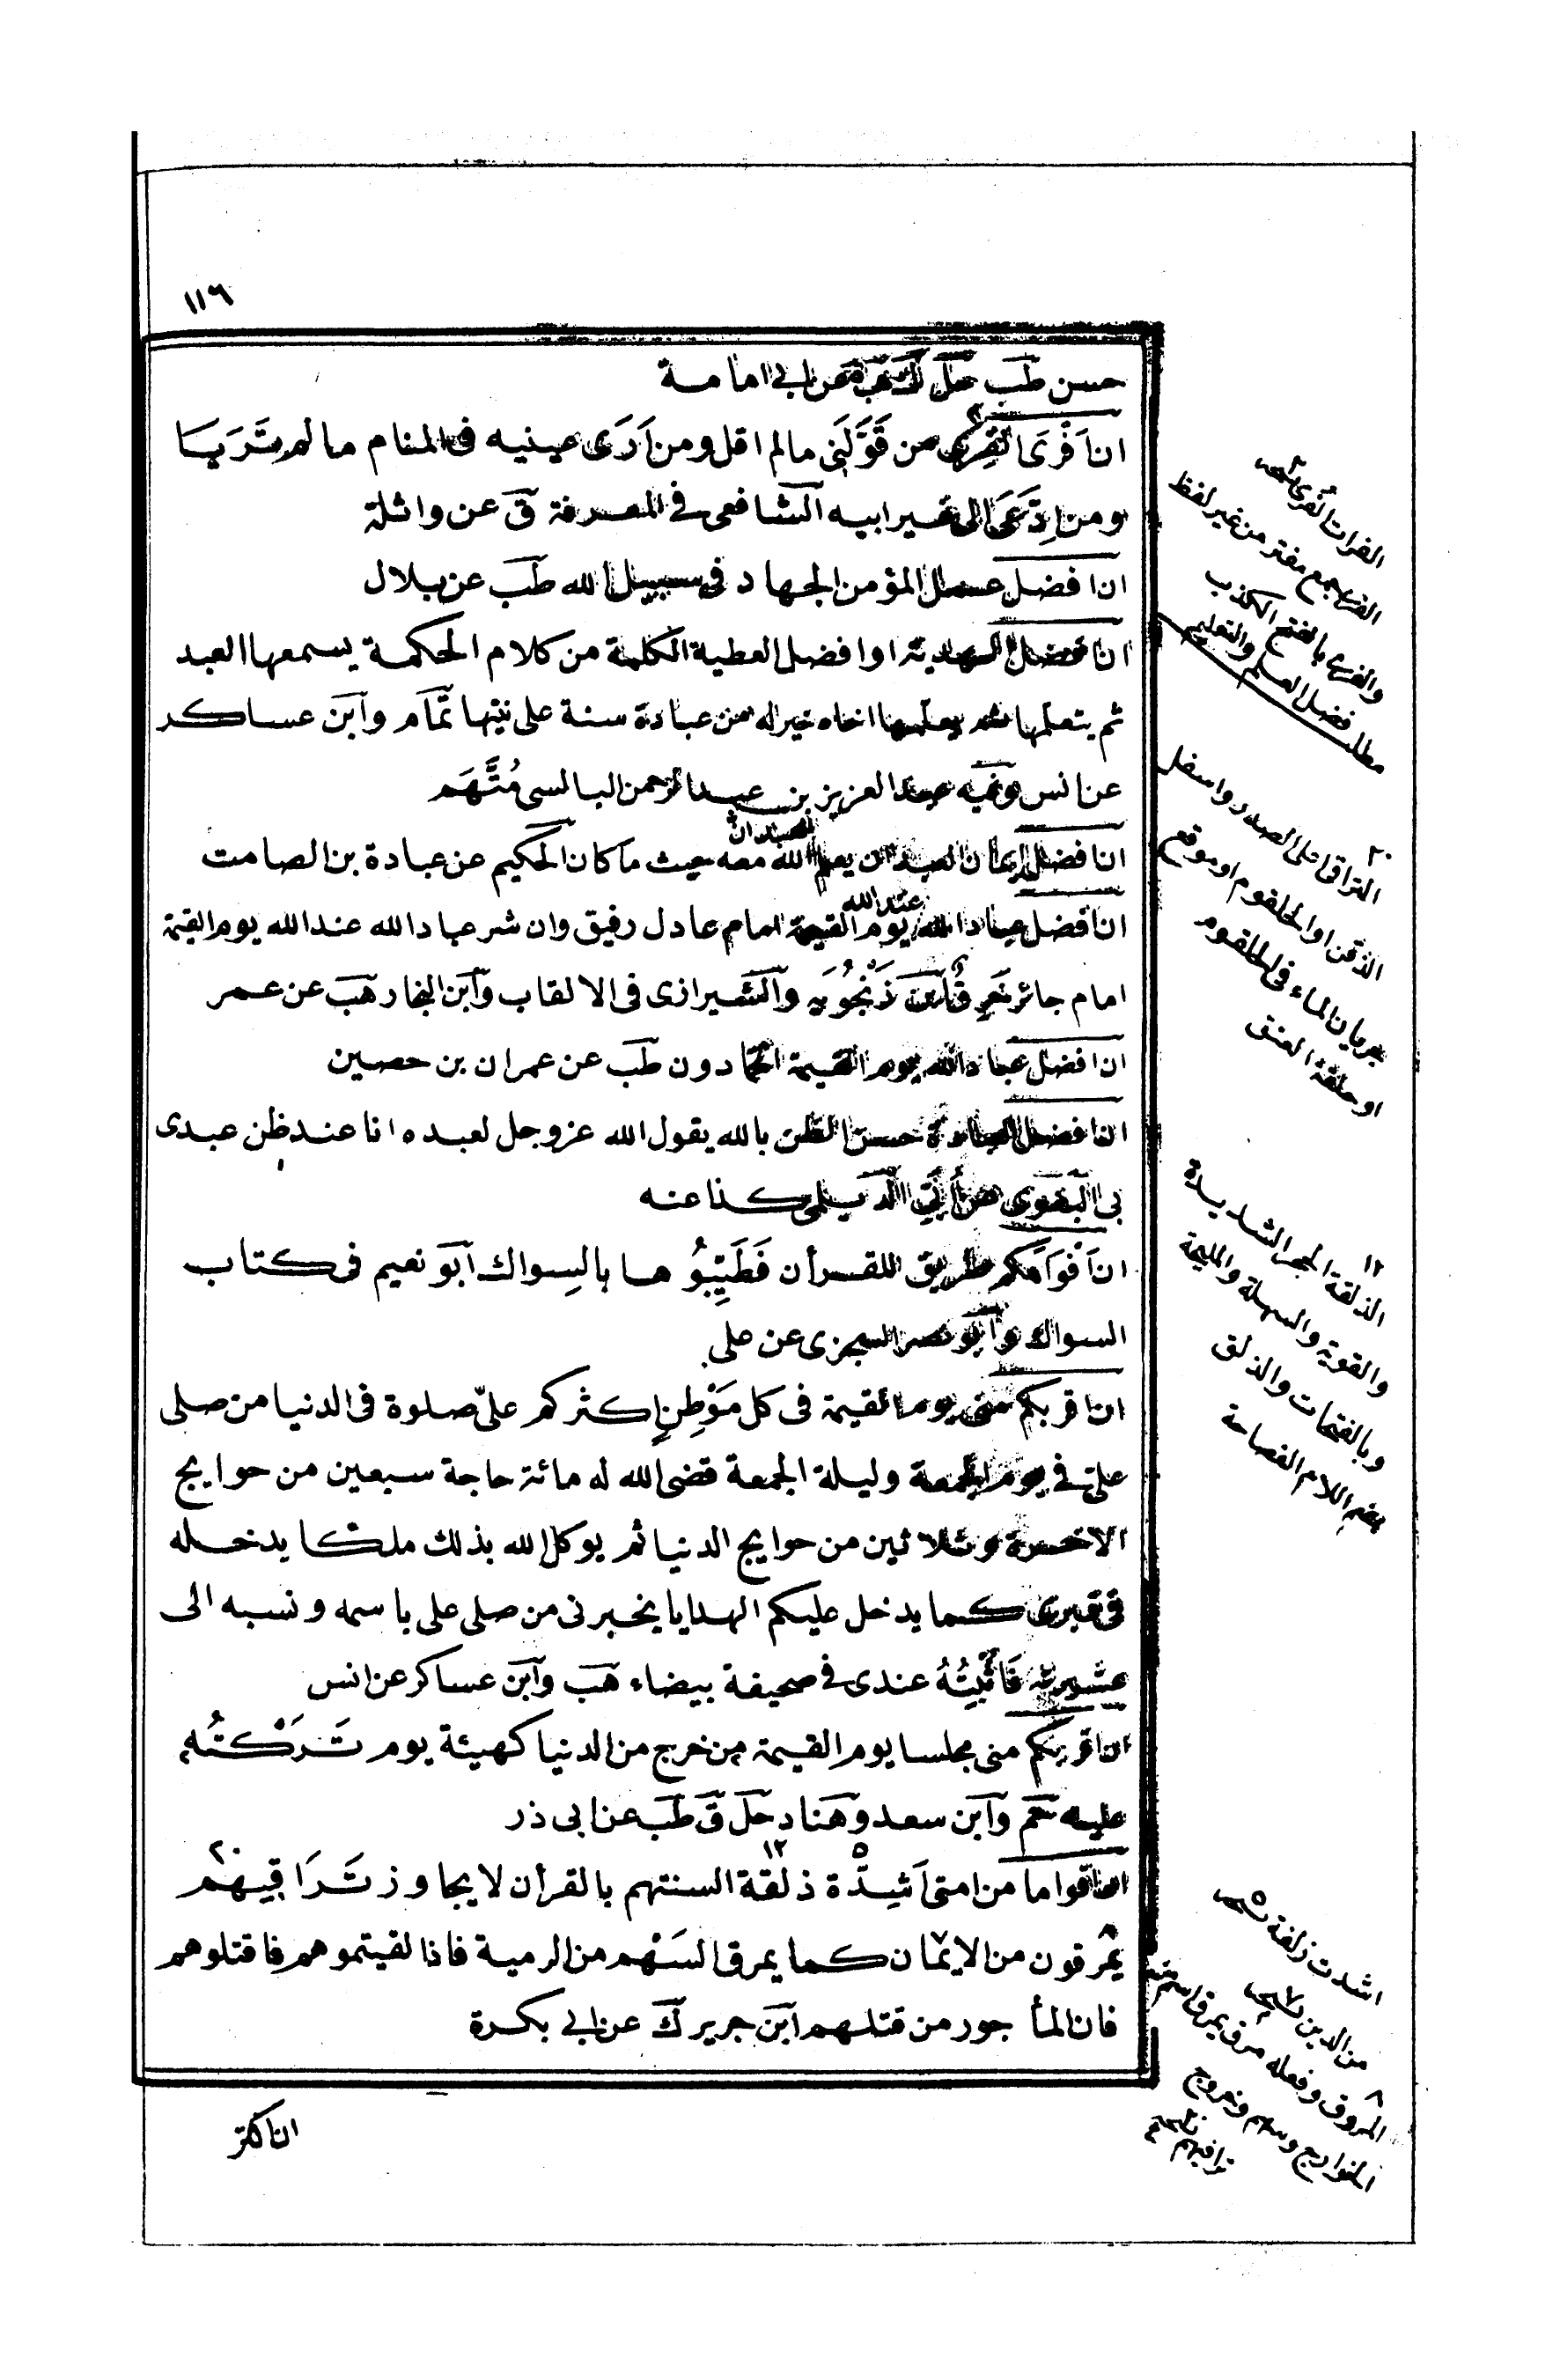 ١١٦
حسن طب حل ك هب عن ابي امامة
ان اَفْرَى الفِرى من قَوَّلَنِى مالم اقل ومن اَرَى عينيه فى المنام مالم تَرَيَا
ومن اِدَّعَى الى غير ابيه الشافعى فى المعرفة ق عن واثلة
ان افضل عمل المؤمن الجهاد فى سبيل الله طب عن بلال
ان افضل الهدية او افضل العطية الكلمة من كلام الحكمة يسمعها العبد
ثم يتعلمها ثم يعلمها اخاه خير له من عبادة سنة على نيتها تمام وابن عساكر
عن انس وفيه عبد العزيز بن عبد الرحمن البالسى مُتَّهَم
ان افضل ايمان العبد ان يعلم الله معه حيث ما كان الحكيم عن عبادة بن الصامت
عند الله
ان افضل عباد الله يوم القيمة امام عادل رفيق وان شر عباد الله عند الله يوم القيمة
امام جائر خرق ابن زَنْجُويَه والشيرازى فى الالقاب وابن النجار هب عن عمر
ان افضل عباد الله يوم القيمة الحمادون طب عن عمران بن حصين
ان افضل العبادة حسن الظن بالله يقول الله عز وجل لعبده انا عند ظن عبدى
بى البغوى عن اُبَىّ الديلمى كذا عنه
ان اَفْوَاهَكم طريق للقرأن فَطَيِّبُوها بالسِواك ابو نعيم فى كتاب
السواك وابو نصر السجزى عن على
ان اقربكم منى يوم القيمة فى كل مَوْطِنٍ اكثركم علىّ صلوة فى الدنيا من صلى
علىّ فى يوم الجمعة وليلة الجمعة قضى الله له مائة حاجة سبعين من حوايج
الاخرة وثلاثين من حوايج الدنيا ثم يوكل الله بذلك ملكا يدخله
فى قبرى كما يدخل عليكم الهدايا يخبرنى من صلى على باسمه ونسبه الى
عشيرته فَاُثْبِتُهُ عندى فى صحيفة بيضاء هب وابن عساكر عن انس
ان اقربكم منى مجلسا يوم القيمة من خرج من الدنيا كهيئة يوم تَرَكْتُه
عليه حم وابن سعد وهناد حل ق طب عن ابى ذر
ان اقواما من امتى اَشِدّة ذلقة السنتهم بالقرأن لا يجاوز تَرَاقِيهم
يمرقون من الايمان كما يمرق السَهْم من الرمية فاذا لقيتموهم فاقتلوهم
فان المأجور من قتلهم ابن جرير ك عن ابى بكرة
ان اكثر
الفرى جمع مفتر من غير لفظ
والفرى بالفتح الكذب
مطلب فضل العلم والتعليم
٢٠
التراقى اعلى الصدر واسفل
الذقن او الحلقوم او موقع
جريان الماء فى الحلقوم
او حلقة العنق
١٢
الذلقة الحجر الشديدة
والقوية والسهلة والمليحة
وبالفتحات والذلق
بضم اللام الفصاحة
اشدت زلفة نسخه
من الدين نسخه
٨
الخوارج
تراقيهم نسخه